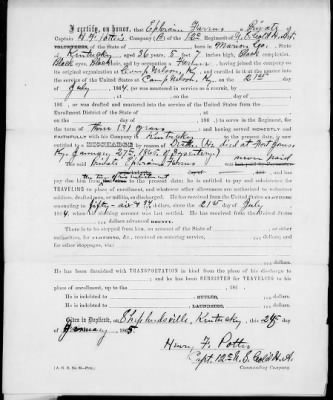 I certify, on honor, that Ephraim Burns a Private
Captain H. F. Potter's Company (A) of the 12th Regiment of U.S. Cold. H. Art.
VOLUNTEERS, of the State of born in Marion Co., State
of Kentucky, aged 36 years; 5 feet 7 inches high, Black complexion,
Black eyes, Black hair, and by occupation a Farmer, having joined the company
on its original organization at Camp Nelson, Ky., and enrolled in it at the muster into the
service of the United States at Camp Nelson, Ky. on the 21st day of
July, 1864,
186 , or was drafted and mustered into the service of the United States from the
Enrollment District of the State of on the day
of , 186 , to serve in the Regiment, for
the term of three (3) years: and having served HONESTLY and
FAITHFULLY with his Company in Kentucky to the present date, is now
entitled to a DISCHARGE by reason of Death. (He died at Fort Jones
Ky. January 27th, 1865, of Dysentery)
The said Private Ephraim Burns was never paid
and has
pay due him from to the present date; he is entitled to pay and subsistence for
TRAVELING to place of enrollment, and whatever other allowances are authorized to volunteer
soldiers, drafted men, or militia, so discharged. He has received from the United States CLOTHING
amounting to fifty-six & dollars, since the 21st day of July
1864, when his clothing account was last settled. He has received from the United States
dollars advanced BOUNTY.
There is to be stopped from him, on account of the State of or other
authorities, for CLOTHING, &c., received on entering service, dollars; and
for other stoppages, viz:
dollars.
He has been furnished with TRANSPORTATION in kind from the place of his discharge to
; and he has been SUBSISTED for TRAVELING to his
place of enrollment, up to the , 186 .
He is indebted to , SUTLER, dollars.
He is indebted to , LAUNDRESS, dollars.
Given in Duplicate, at Shepherdsville, Kentucky, this 28th day
of January 1865
Henry F. Potter
Capt. 12th U.S. Cold. H. A.
Commanding Company.